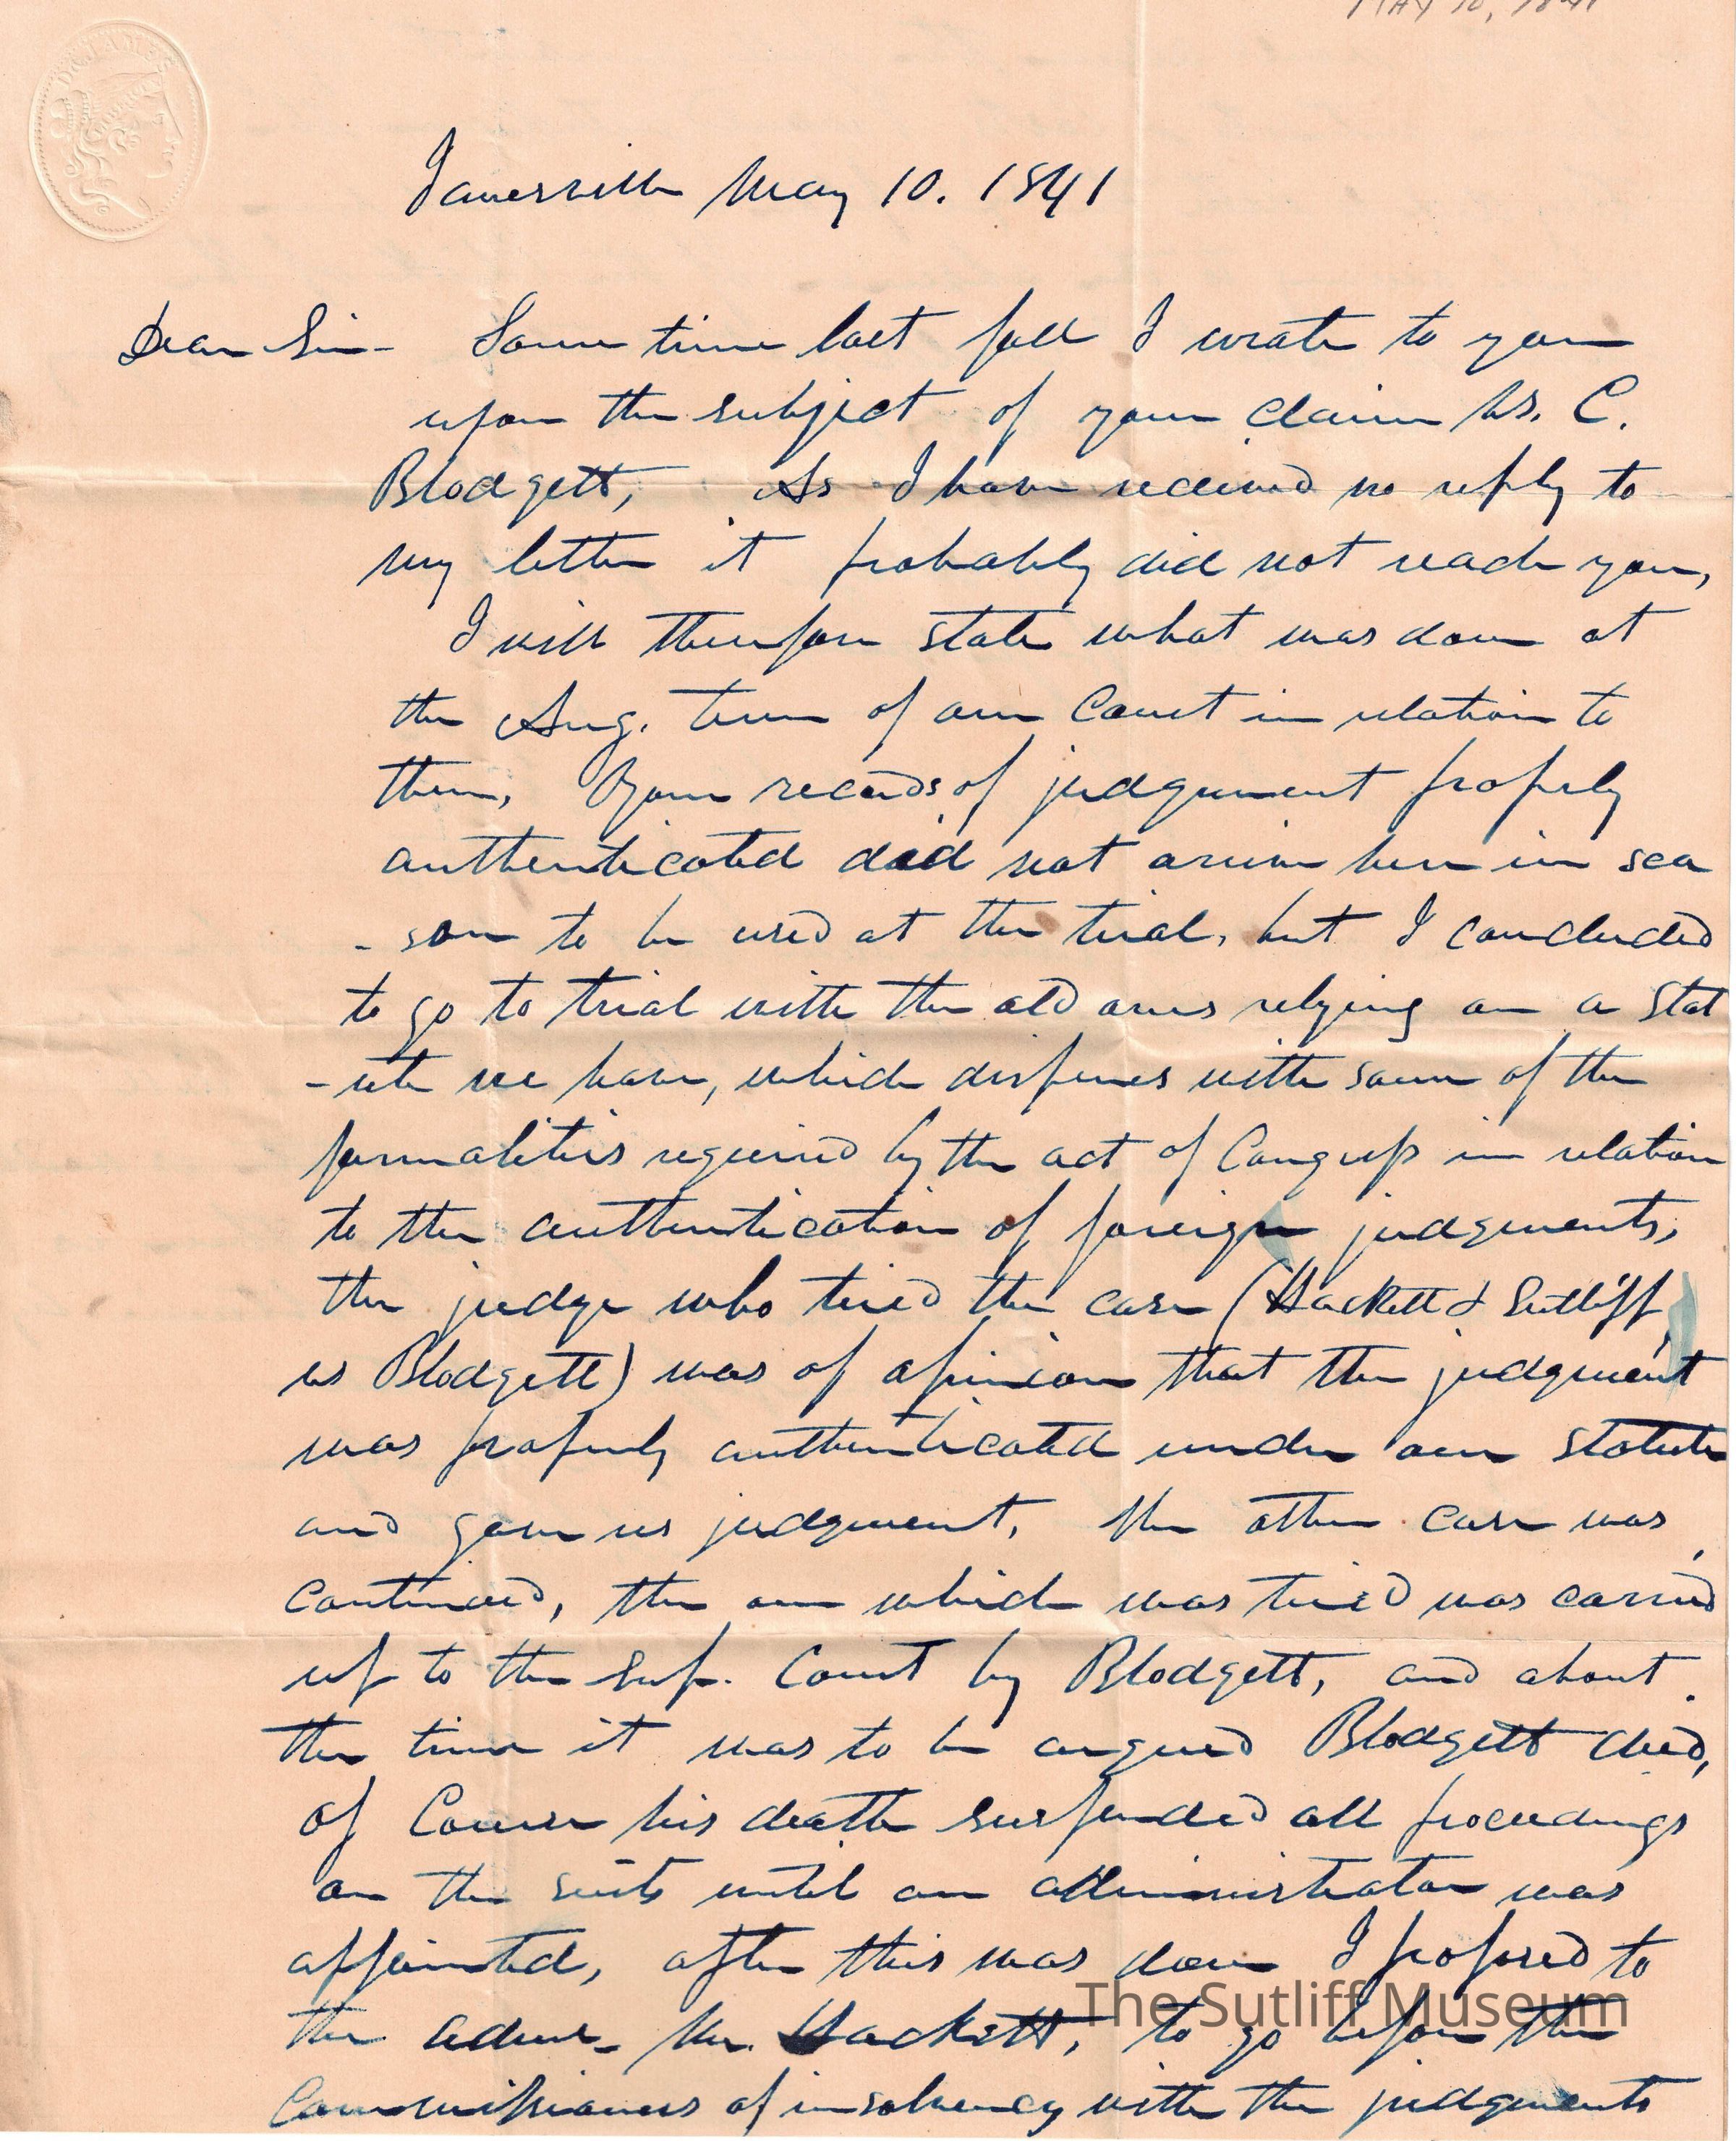 MAY 10, 1841
DR JAMES
Janesville May 10. 1841
Dear Sir - Some time last fall I wrote to you
upon the subject of your claim vs. C.
Blodgett, As I have received no reply to
my letter it probably did not reach you,
I will therefore state what was done at
the Aug. term of our Court in relation to
them, Your records of judgment properly
authenticated did not arrive here in sea
- son to be used at the trial, but I concluded
to go to trial with the old ones relying on a Stat
- ute we have, which dispenses with some of the
formalities required by the act of Congress in relation
to the authentication of foreign judgments,
the judge who tried the case (Hackett & Sutliff
vs Blodgett) was of opinion that the judgment
was properly authenticated under our statute
and gave us judgment, the other case was
continued, the one which was tried was carried
up to the Sup. Court by Blodgett, and about
the time it was to be argued Blodgett died,
of Course his death suspended all proceedings
on the suits until an administrator was
appointed, after this was done I proposed to
the Admr. Mr. Hackett, to go before the
Commissioners of insolvency with the judgments
The Sutliff Museum